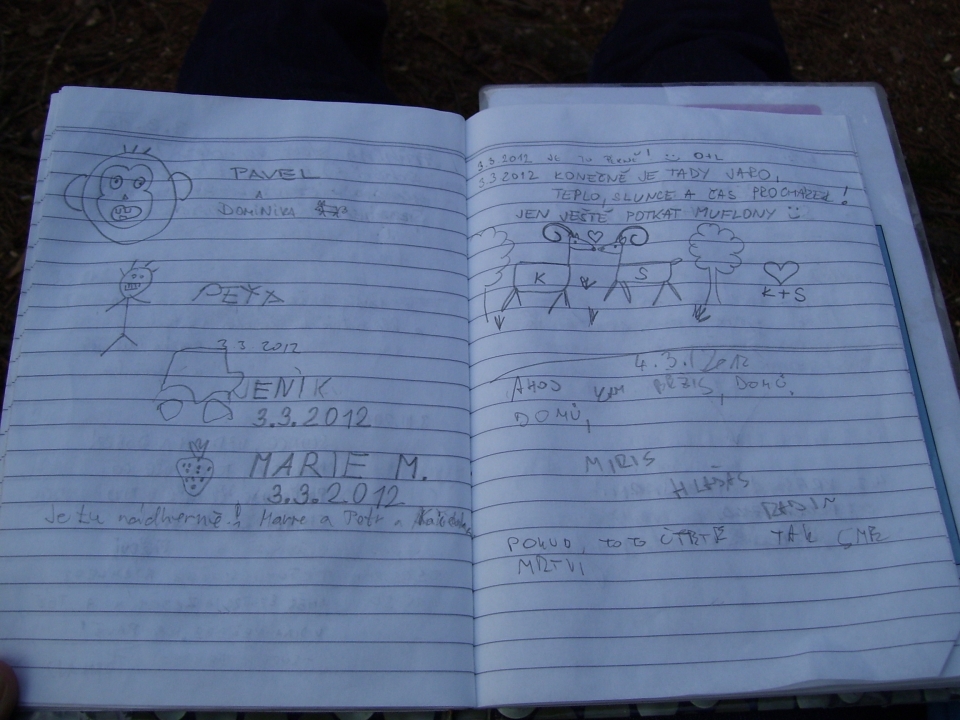 PAVEL
A
DOMINIKA
PEŤA
3 3 2012
JENÍK
3.3.2012
MARIE M.
3.3.2012
Je tu nádherně! Marre a Petr a
3.3.2012 JE TO O+L
3.3 2012 KONEČNĚ JE TADY JARO,
TEPLO, SLUNCE A ČAS PROCHÁZEK!
JEN JEŠTĚ POTKAT MUFLONY
K S
K+S
4.3.2012
AHOJ KAM BĚŽÍŠ, DOMŮ,
DOMŮ,
MIRIS
HLADÁŠ
RADIM
POKUD TOTO ČTETE TAK JSME
MRTVI